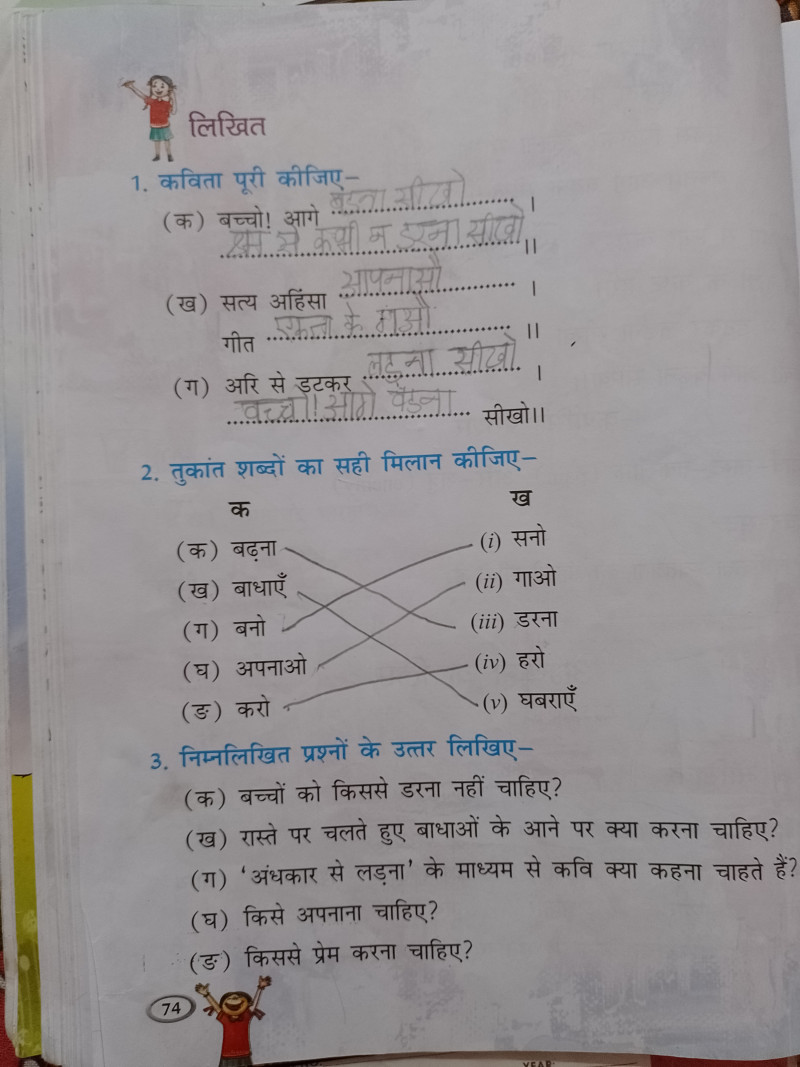 लिखित
1. कविता पूरी कीजिए–
(क) बच्चो! आगे बड़ता सीखो।
श्रम से कभी न डरना सीखो॥
(ख) सत्य अहिंसा आपनाओ।
गीत एकता के गाओ॥
(ग) अरि से डटकर लड़ना सीखो।
बच्चो! आगे बड़ना सीखो॥
2. तुकांत शब्दों का सही मिलान कीजिए–
क ख
(क) बढ़ना (i) सनो
(ख) बाधाएँ (ii) गाओ
(ग) बनो (iii) डरना
(घ) अपनाओ (iv) हरो
(ङ) करो (v) घबराएँ
3. निम्नलिखित प्रश्नों के उत्तर लिखिए–
(क) बच्चों को किससे डरना नहीं चाहिए?
(ख) रास्ते पर चलते हुए बाधाओं के आने पर क्या करना चाहिए?
(ग) ‘अंधकार से लड़ना’ के माध्यम से कवि क्या कहना चाहते हैं?
(घ) किसे अपनाना चाहिए?
(ङ) किससे प्रेम करना चाहिए?
74
YEAR